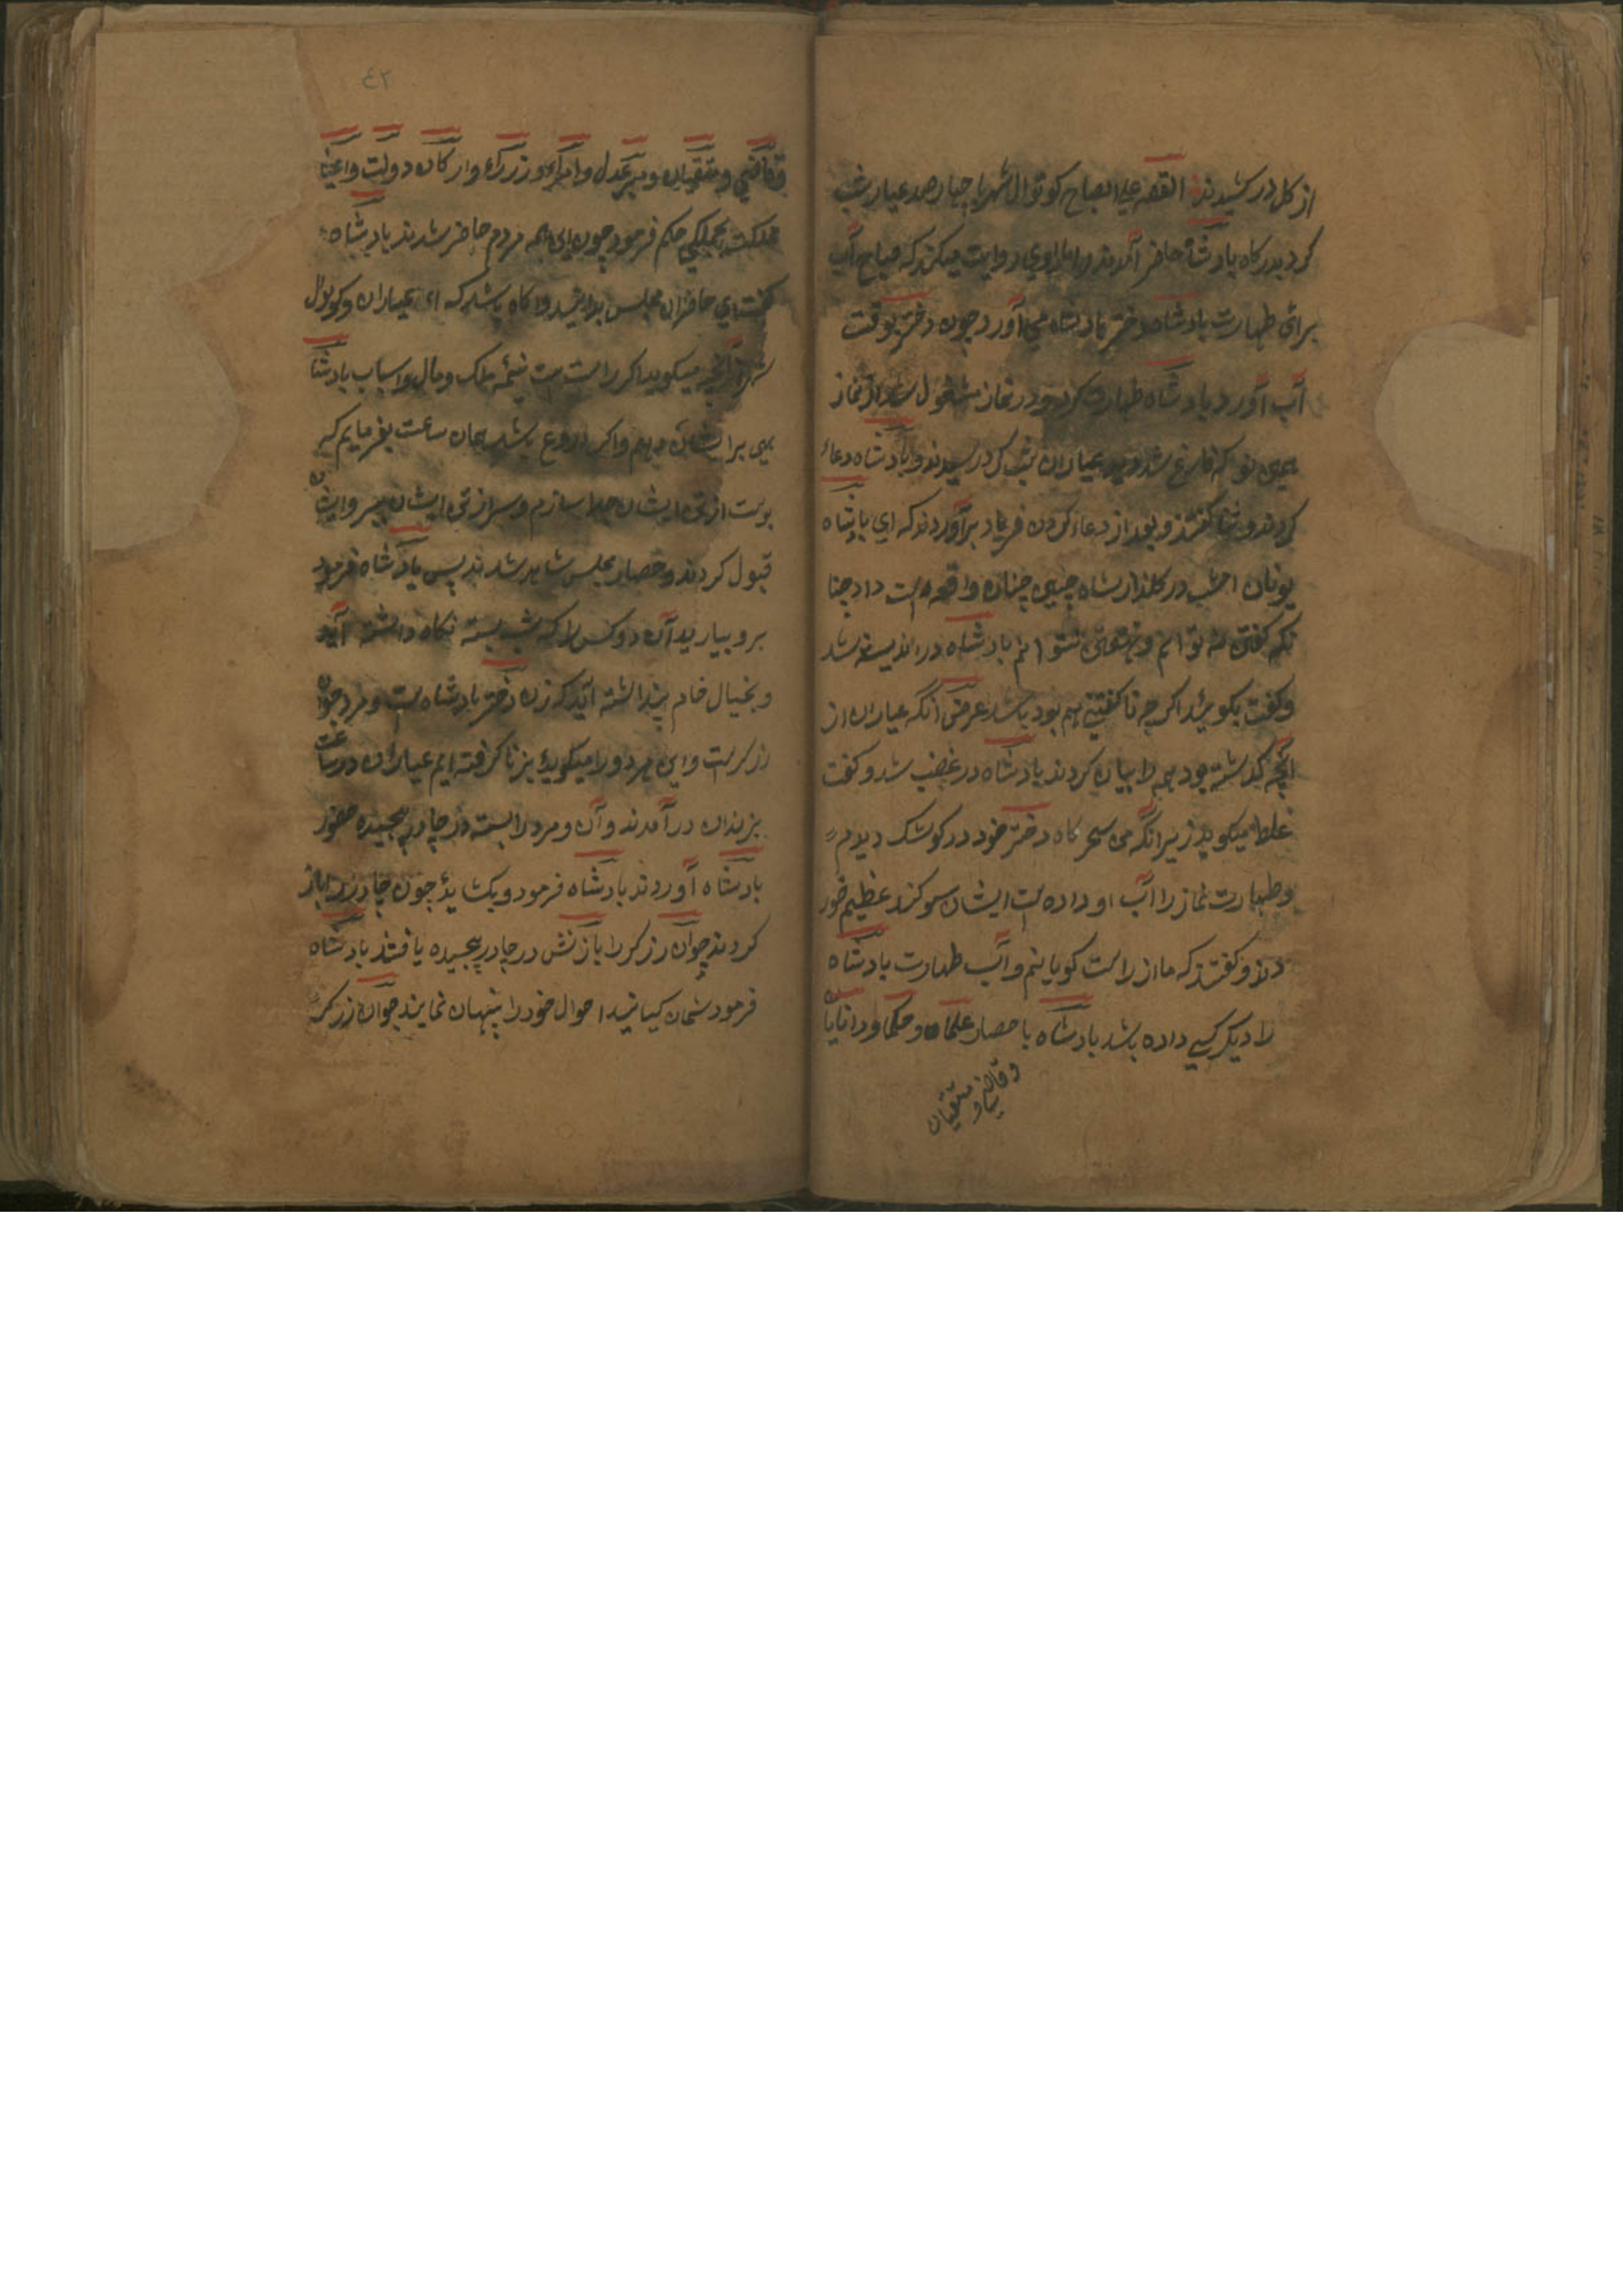 از کل در کشیدند القصه علی الصباح کوتوال شهر با چهار صد عیار شب
کرد بدرکاه پادشاه حاضر آمدند راوی روایت میکند که صباح آب
برای طهارت پادشاه دختر پادشاه می آورد چون دختر بوقت
آب آورد پادشاه طهارت کرد و در نماز مشغول شد از نماز
همین نو که فارغ شد عیاران شب کرد رسیدند و پادشاه دعاء
کردند و ثنا کفتند و بعد از دعاء کردن فریاد برآوردند که ای پادشاه
یونان امشب در کلذار شاه چنین چنان واقعه است داد چنا
نکه کفتن نه توانم و نهفتن نتوانم پادشاه در اندیشه شد
و کفت بکوئید اکر چه ناکفتنی هم بود باشد عرض آنکه عیاران از
آنچه کذشته بود همه را بیان کردند پادشاه در غضب شد و کفت
غلط میکوید زیرانکه من سحرکاه دختر خود در کوشک دیدم
و طهارت نماز را آب او داده است ایشان سوکند عظیم خور
دند و کفتند که ما از راست کویانیم و آب طهارت پادشاه
را دیکر کسی داده باشد پادشاه باحضار علماء و حکما و دانایا
و قاضی و متقیان
٤٢
و قاضی و متقیان و میر عدل و امراء و وزراء و ارکان دولت و اعیا
مملکت بجملکی حکم فرمود چون این همه مردم حاضر شدند پادشاه
کفت ای حاضران مجلس بدانید و اکاه باشید که ای عیاران و کوتوال
شهر آنچه میکوید اکر راست است نیمه ملک و مال و اسباب پادشا
هی برایشان دهم و اکر دروغ باشد همان ساعت بفرمایم که
پوست از تن ایشان جدا سازم و سر از تن ایشان
قبول کردند و حصار مجلس شاهد شدند پس پادشاه فرمود
برو بیارید آن دو کس را که شب بسته نکاه داشته آید
و بخیال خام پنداشته آید که زن دختر پادشاه است و مرد جوان
زرکرست و این هردو را میکوید بزنا کرفته ایم عیاران در ساعت
بزندان در آمدند و آن و مرد را بسته در چادر پیچیده حضور
پادشاه آوردند پادشاه فرمود و بکشائید چون چادر را باز
کردند جوان زرکر را با زنش در چادر پیچیده یافتند پادشاه
فرمود شمان کیانید احوال خود را پنهان نمایند جوان زرکر